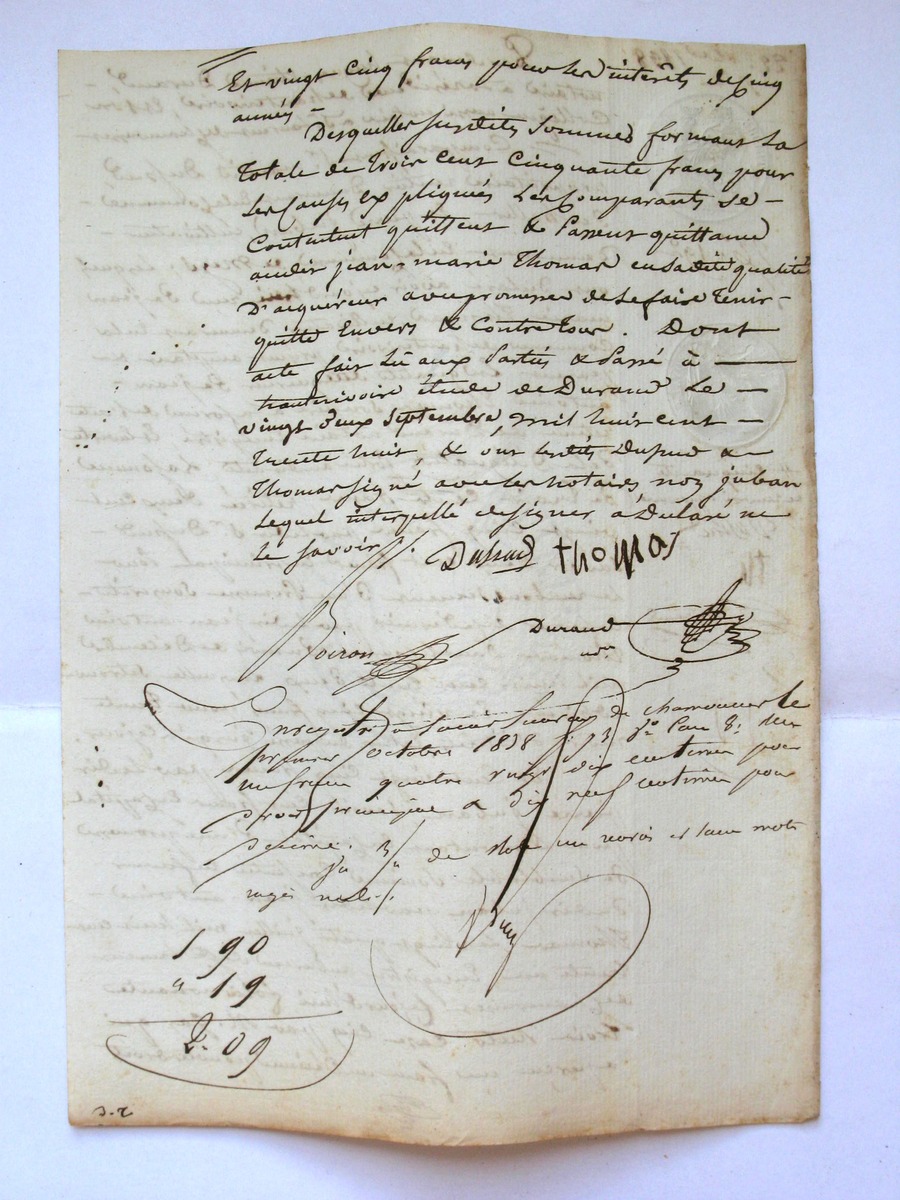 Et vingt cinq francs pour les intérêts de cinq
années -
Desquelles susdites sommes formant la
totale de trois cent cinquante francs pour
les causes expliquées les comparants se -
contentent quittent & passent quittance
audit jean-marie Thomas en sa dite qualité
D'acquéreur avec promesse de le faire tenir -
quitte Envers & Contre tous. Dont
acte fait lû aux Parties & Passé à
étude de Durand le -
vingt deux Septembre, mil huit cent -
trente huit, & ont lesdits Dussud &
Thomas signé avec les notaires non juban
lequel interpellé de signer à Déclaré ne
le savoir
Dussud thomas
Boiron Durand
nre
Enregistré à de chamounier le
premier octobre 1838 f° 13 v° Case 8: Reçu
un franc quatre vingt dix centimes pour
droit principal & dix neuf centimes pour
décime.
de mots
rayés nuls
1 90
" 19
2. 09